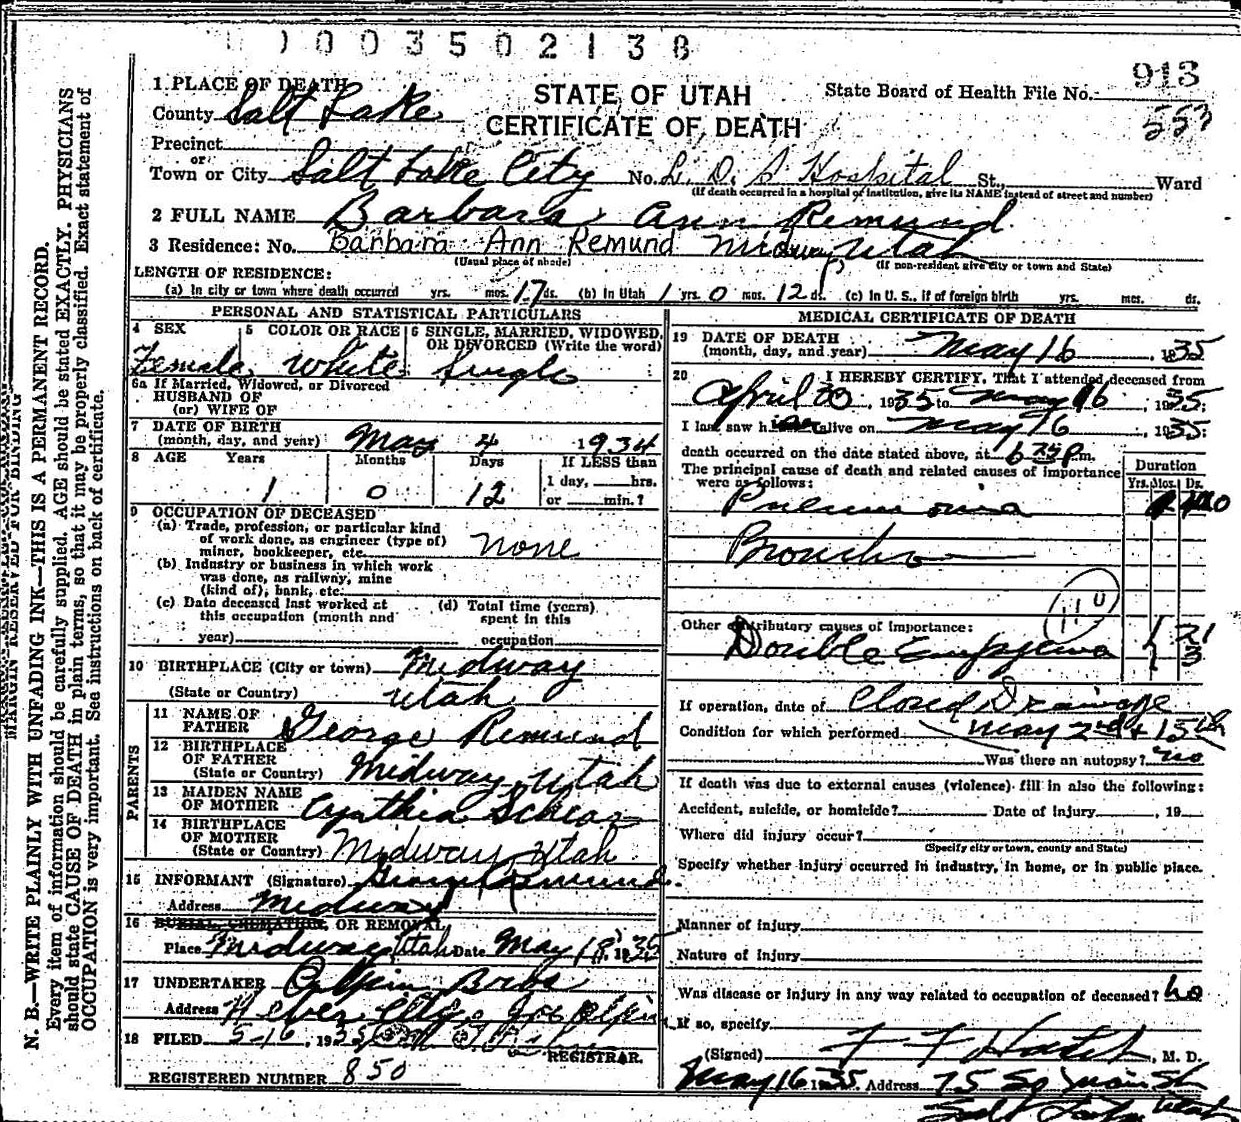 0 0 3 5 0 2 1 3 8
913
553
STATE OF UTAH
CERTIFICATE OF DEATH
State Board of Health File No.
1 PLACE OF DEATH
County Salt Lake
Precinct
or
Town or City Salt Lake City No. L. D. S Hospital St., Ward
(If death occurred in a hospital or institution, give its NAME instead of street and number)
2 FULL NAME Barbara Ann Remund
3 Residence: No. Barbara Ann Remund Midway Utah
(Usual place of abode) (If non-resident give city or town and State)
LENGTH OF RESIDENCE:
(a) In city or town where death occurred yrs. mos. 17 ds. (b) In Utah 1 yrs. 0 mos. 12 ds. (c) In U. S., if of foreign birth yrs. mos. ds.
PERSONAL AND STATISTICAL PARTICULARS
4 SEX 5 COLOR OR RACE 6 SINGLE, MARRIED, WIDOWED, OR DIVORCED (Write the word)
Female White Single
6a If Married, Widowed, or Divorced
HUSBAND OF
(or) WIFE OF
7 DATE OF BIRTH
(month, day, and year) May 4 1934
8 AGE Years Months Days If LESS than
1 day, hrs.
1 0 12 or min.?
9 OCCUPATION OF DECEASED
(a) Trade, profession, or particular kind
of work done, as engineer (type of)
miner, bookkeeper, etc. none
(b) Industry or business in which work
was done, as railway, mine
(kind of), bank, etc.
(c) Date deceased last worked at
this occupation (month and
year)
(d) Total time (years)
spent in this
occupation
10 BIRTHPLACE (City or town) Midway
(State or Country) Utah
PARENTS
11 NAME OF
FATHER George Remund
12 BIRTHPLACE
OF FATHER
(State or Country) Midway, Utah
13 MAIDEN NAME
OF MOTHER Cynthia
14 BIRTHPLACE
OF MOTHER
(State or Country) Midway Utah
15 INFORMANT (Signature) George Remund
Address Midway
16 BURIAL, CREMATION, OR REMOVAL
Place Midway Utah Date May 18, 1935
17 UNDERTAKER Bros
Address Heber City
18 FILED 5-16, 1935
REGISTRAR.
REGISTERED NUMBER 850
MEDICAL CERTIFICATE OF DEATH
19 DATE OF DEATH
(month, day, and year) May 16, 1935
20 I HEREBY CERTIFY, That I attended deceased from
April 30, 1935 to May 16, 1935;
I last saw h alive on May 16, 1935;
death occurred on the date stated above, at 6 p.m.
The principal cause of death and related causes of importance
were as follows:
Duration
Yrs. Mos. Ds.
Pneumonia
Broncho
11
Other contributory causes of importance:
Double Empyema 21
3
If operation, date of Closed Drainage
Condition for which performed May 2nd + 15th
Was there an autopsy? no
If death was due to external causes (violence) fill in also the following:
Accident, suicide, or homicide? Date of injury , 19
Where did injury occur?
(Specify city or town, county and State)
Specify whether injury occurred in industry, in home, or in public place.
Manner of injury
Nature of injury
Was disease or injury in any way related to occupation of deceased? no
If so, specify
(Signed) F F Hatch, M. D.
May 16 1935 Address 75 So Main St
Salt Lake Utah
MARGIN RESERVED FOR BINDING
N. B.—WRITE PLAINLY WITH UNFADING INK—THIS IS A PERMANENT RECORD.
Every item of information should be carefully supplied. AGE should be stated EXACTLY. PHYSICIANS
should state CAUSE OF DEATH in plain terms, so that it may be properly classified. Exact statement of
OCCUPATION is very important. See instructions on back of certificate.